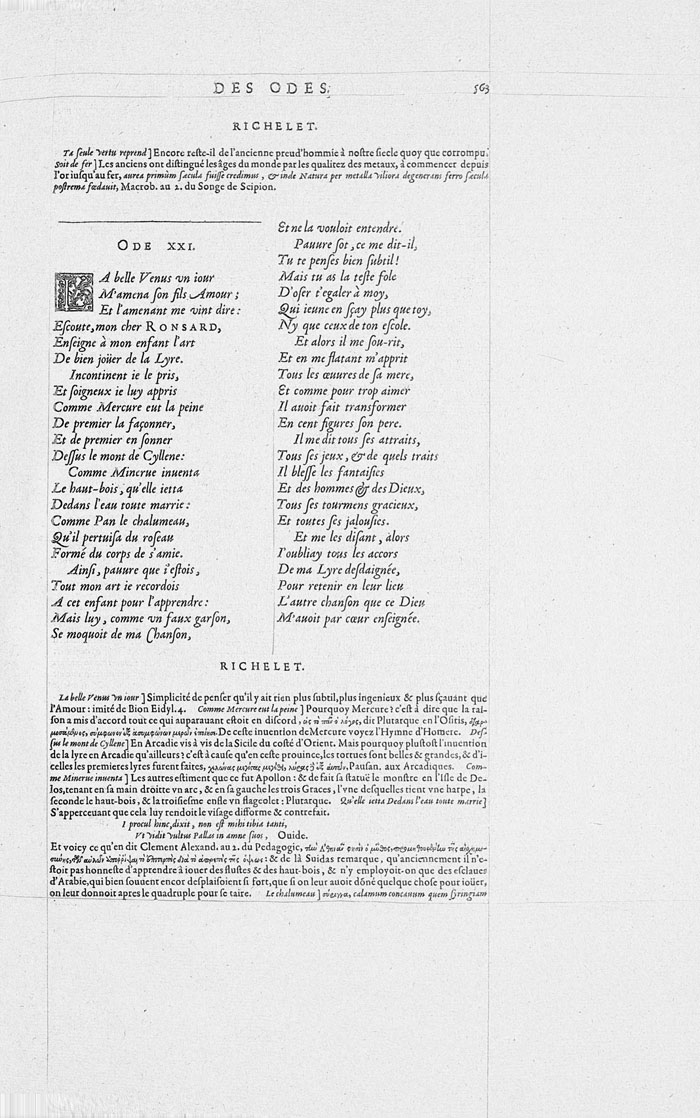 DES ODES. 563
RICHELET.
Ta seule vertu reprend] Encore reste-il de l'ancienne preud'hommie à nostre siecle quoy que corrompu.
Soit de fer] Les anciens ont distingué les âges du monde par les qualitez des metaux, à commencer depuis
l'or iusqu'au fer, aurea primùm sæcula fuisse credimus, & inde Natura per metalla viliora degenerans ferro sæcula
postrema fœdauit, Macrob. au 2. du Songe de Scipion.
ODE XXI.
LA belle Venus vn iour
M'amena son fils Amour;
Et l'amenant me vint dire:
Escoute, mon cher RONSARD,
Enseigne à mon enfant l'art
De bien joüer de la Lyre.
Incontinent ie le pris,
Et soigneux ie luy appris
Comme Mercure eut la peine
De premier la façonner,
Et de premier en sonner
Dessus le mont de Cyllene:
Comme Minerue inuenta
Le haut-bois, qu'elle ietta
Dedans l'eau toute marrie:
Comme Pan le chalumeau,
Qu'il pertuisa du roseau
Formé du corps de s'amie.
Ainsi, pauure que i'estois,
Tout mon art ie recordois
A cet enfant pour l'apprendre:
Mais luy, comme vn faux garson,
Se moquoit de ma Chanson,
Et ne la vouloit entendre.
Pauure sot, ce me dit-il,
Tu te penses bien subtil!
Mais tu as la teste fole
D'oser t'egaler à moy,
Qui ieune en sçay plus que toy,
Ny que ceux de ton escole.
Et alors il me sou-rit,
Et en me flatant m'apprit
Tous les œuures de sa mere,
Et comme pour trop aimer
Il auoit fait transformer
En cent figures son pere.
Il me dit tous ses attraits,
Tous ses jeux, & de quels traits
Il blesse les fantaisies
Et des hommes & des Dieux,
Tous ses tourmens gracieux,
Et toutes ses jalousies.
Et me les disant, alors
I'oubliay tous les accors
De ma Lyre desdaignée,
Pour retenir en leur lieu
L'autre chanson que ce Dieu
M'auoit par cœur enseignée.
RICHELET.
La belle Venus vn iour] Simplicité de penser qu'il y ait rien plus subtil, plus ingenieux & plus sçauant que
l'Amour: imité de Bion Eidyl. 4. Comme Mercure eut la peine] Pourquoy Mercure? c'est à dire que la rai-
son a mis d'accord tout ce qui auparauant estoit en discord, dit Plutarque en l'Osiris,
De ceste inuention de Mercure voyez l'Hymne d'Homere. Des-
sus le mont de Cyllene] En Arcadie vis à vis de la Sicile du costé d'Orient. Mais pourquoy plustost l'inuention
de la lyre en Arcadie qu'ailleurs? c'est à cause qu'en ceste prouince, les tortues sont belles & grandes, & d'i-
celles les premieres lyres furent faites, Pausan. aux Arcadiques. Com-
me Minerue inuenta] Les autres estiment que ce fut Apollon: & de fait sa statuë le monstre en l'Isle de De-
los, tenant en sa main droitte vn arc, & en sa gauche les trois Graces, l'vne desquelles tient vne harpe, la
seconde le haut-bois, & la troisiesme enfle vn flageolet: Plutarque. Qu'elle ietta Dedans l'eau toute marrie]
S'apperceuant que cela luy rendoit le visage difforme & contrefait.
I procul hinc, dixit, non est mihi tibia tanti,
Vt vidit vultus Pallas in amne suos, Ouide.
Et voicy ce qu'en dit Clement Alexand. au 2. du Pedagogic,
: & de là Suidas remarque, qu'anciennement il n'e-
stoit pas honneste d'apprendre à iouer des flustes & des haut-bois, & n'y employoit-on que des esclaues
d'Arabie, qui bien souuent encor desplaisoient si fort, que si on leur auoit dōné quelque chose pour ioüer,
on leur donnoit apres le quadruple pour se taire. Le chalumeau] calamum concauum quem syringiam